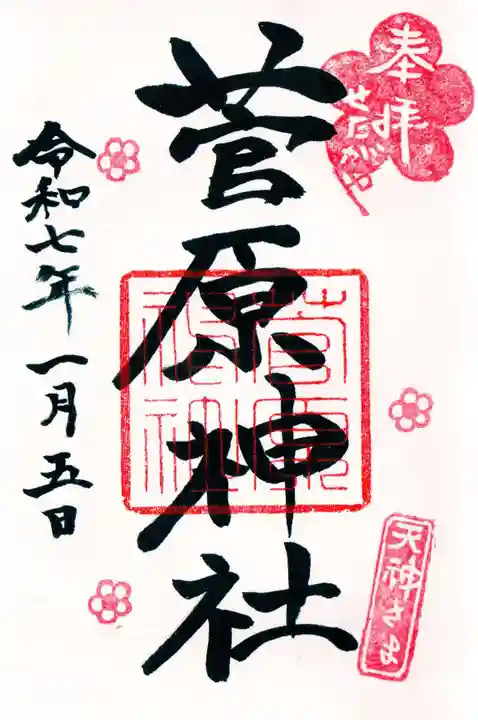 奉拝
せたがや
菅原神社
菅原
神社
天神さま
令和七年一月五日